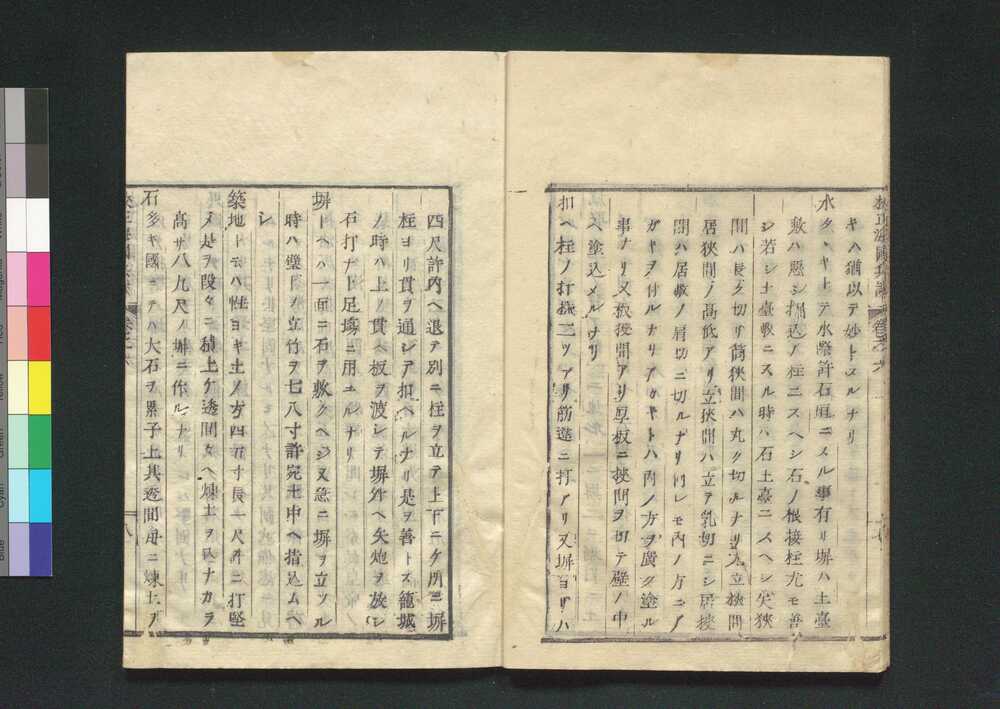 キハ猶以テ妙トスルナリ
水タヽキトテ水際許石垣ニスル事有リ塀ハ土臺
敷ハ惡シ掘込ノ柱ニスヘシ石ノ根接柱尤モ善
シ若シ土臺敷ニスル時ハ石土臺ニスヘシ矢狹
間ハ長ク切リ筒狹間ハ丸ク切ルナリ又立狹間
居狹間ノ高低アリ立狹間ハ立テ乳切ニシ居狹
間ハ居敷ノ肩切ニ切ルナリ何レモ内ノ方ニア
ガキヲ付ルナリアガキトハ内ノ方ヲ廣ク塗ル
事ナリ又板狹間アリ厚板ニ狹間ヲ切テ壁ノ中
ヘ塗込メルナリ
扣ヘ柱ノ打樣二ツアリ筋違ニ打アリ又塀ヨリハ
四尺許内ヘ退テ別ニ柱ヲ立テ上下二ケ所ニ塀
柱ヨリ貫ヲ通シテ扣ヘルナリ是ヲ善トス籠城
ノ時ハ上ノ貫ヘ板ヲ渡シテ塀外ヘ矢炮ヲ放シ
石打ナト足場ニ用ユルナリ
塀下ヘハ一面ニ石ヲ敷クヘシ又急ニ塀ヲ立ツル
時ハ塀下ヘ立竹ヲ七八寸許宛土中ヘ指込ムヘ
シ
築地トモハ性ヨキ土ノ方四五寸長一尺斗ニ打堅
メ是ヲ段々ニ積上ケ透間々ヘ煉土ヲ込ナカラ
高サ八九尺ノ塀ニ作ルナリ
石多キ國ニテハ大石ヲ累子上其透間毎ニ煉土ヲ